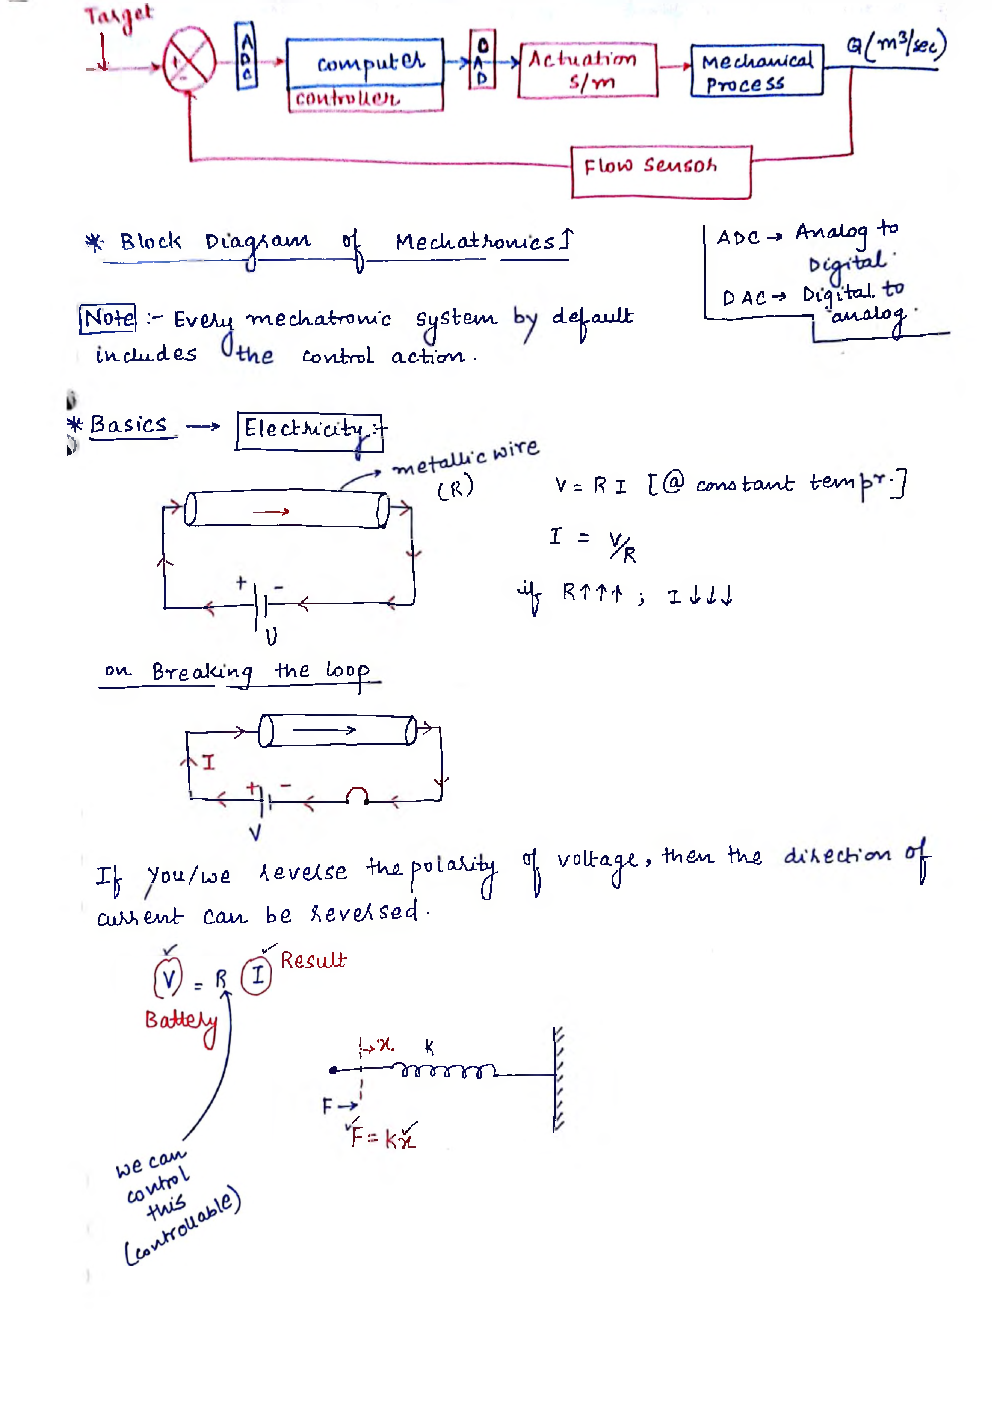 Target
ADC
computer
controller
DAC
Actuation
S/m
Mechanical
Process
Q(m³/sec)
+
-
Flow sensor
* Block Diagram of Mechatronics↑
ADC → Analog to
Digital.
DAC → Digital to
analog.
Note :- Every mechatronic system by default
includes the control action.
* Basics → Electricity :-
metallic wire
(R)
V = R I [@ constant tempr.]
I = V/R
if R↑↑↑ ; I↓↓↓
+ -
V
on Breaking the loop
I
+ -
V
If you/we reverse the polarity of voltage, then the direction of
current can be reversed.
V = R I Result
Battery
x k
F→
F = kx
we can
control
this
(controllable)